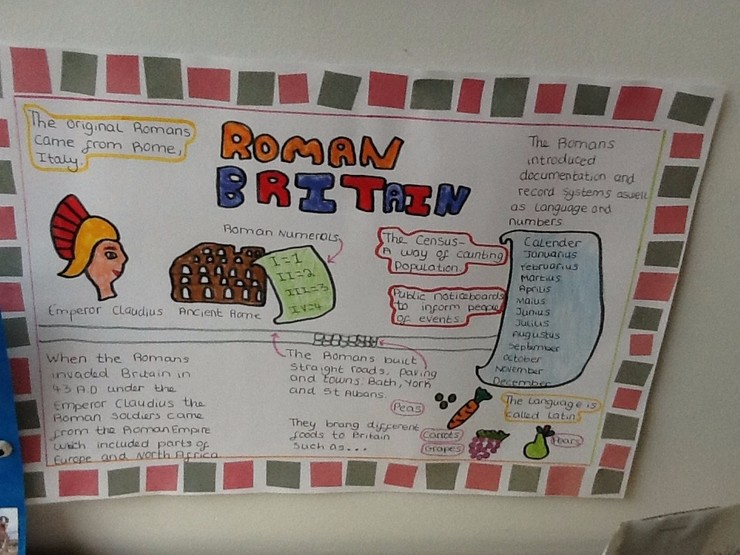 The original Romans
came from Rome,
Italy.
ROMAN
BRITAIN
The Romans
introduced
documentation and
record systems aswell
as language and
numbers
Roman Numerals
I=1
II=2
III=3
IV=4
Emperor Claudius
Ancient Rome
The Census-
A way of counting
Population.
Public noticeboards
to inform people
of events
Calender
Januarius
Februarius
Martius
Aprilis
Maius
Junius
Julius
Augustus
September
October
November
December
When the Romans
invaded Britain in
43 A.D under the
Emperor Claudius the
Roman Soldiers came
from the Roman Empire
which included parts of
Europe and North Africa
The Romans built
straight roads, paving
and towns. Bath, York
and St Albans.
They brang different
foods to Britain
such as...
Peas
Carrots
Grapes
The language is
called Latin
Pears